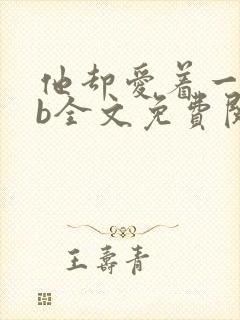 他却爱着一
b全文免费阅
王寿青